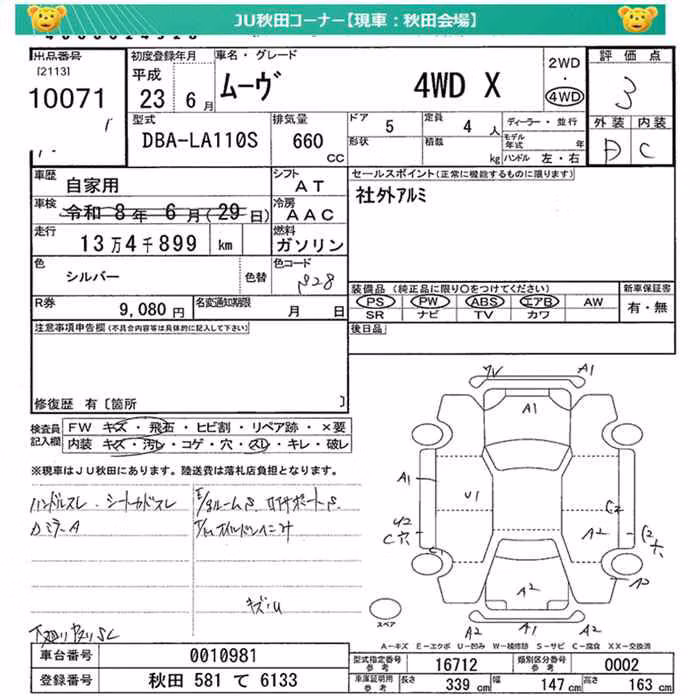 JU秋田コーナー【現車：秋田会場】
出品番号
[2113]
10071
初度登録年月
平成
23 6月
車名・グレード
ムーヴ 4WD X
2WD
・
4WD
評価点
3
外装 内装
D C
型式
DBA-LA110S
排気量
660
CC
ドア 5
形状
定員 4 人
積載 kg
ディーラー・並行
モデル年式 年
ハンドル 左・右
車歴 自家用
車検 令和 8年 6月(29日)
走行 13万4千899 km
色 シルバー 色替
シフト AT
冷房 AAC
燃料 ガソリン
色コード S28
R券 9,080円
名変通知期限 月 日
セールスポイント(正常に機能するものに限ります)
社外アルミ
装備品 (純正品に限り○をつけてください)
PS PW ABS エアB AW
SR ナビ TV カワ
新車保証書
有・無
後日品
注意事項申告欄(不具合内容等は具体的に記入して下さい)
修復歴 有[箇所 ]
検査員記入欄
FW キズ・飛石・ヒビ割・リペア跡・×要
内装 キズ・汚レ・コゲ・穴・スレ・キレ・破レ
※現車はJU秋田にあります。陸送費は落札店負担となります。
ハンドルスレ・シートカドスレ
カミラーA
キズ・U
下廻りサビSC
A1
A1
A1
U1
U2
C穴
C1
C2
A2
C2
穴
A2
A2
A1
A2
スペア
A－キズ E－エクボ U－凹み W－補修跡 S－サビ C－腐食 XX－交換済
車台番号 0010981
登録番号 秋田 581 て 6133
型式指定番号 参考 16712
類別区分番号 参考 0002
車庫証明用 参考 長さ 339 cm 幅 147 cm 高さ 163 cm